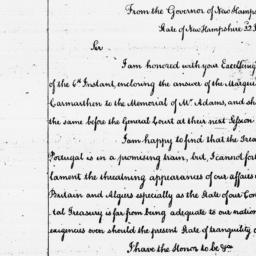 From the Governor of New Hamps
State of New Hampshire 22
Sir
I am honored with your Excellency
of the 6th Instant, enclosing the answer of the Marquis
Carmarthen to the Memorial of Mr. Adams, and sh
the same before the General Court at their next Session
I am happy to find that the Trea
Portugal is in a promising train, but, I cannot for
lament the threatning appearances of our affairs
Britain and Algiers especially as the State of our Con
tal Treasury is far from being adequate to our nation
exigencies even should the present State of tranquility
I have the Honor to be &ca